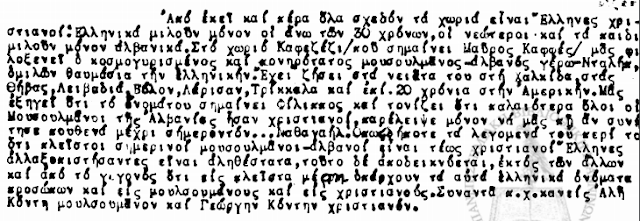 Ἀπό ἐκεῖ καί πέρα ὅλα σχεδόν τά χωριά εἶναι Ἕλληνες χρι-
στιανοί.Ἑλληνικά μιλοῦν μόνον οἱ ἄνω τῶν 30 χρόνων,οἱ νεώτεροι καί τά παιδιά
μιλοῦν μόνον ἀλβανικά.Στό χωριό Καφεζέζι/πού σημαίνει Μαῦρος Καφφές/ μᾶς φι
λοξενεῖ ὁ κοσμογυρισμένος καί μουσουλμάνος-ἀλβανός γέρω-Νταλήπ,
ὁμιλῶν θαυμάσια τήν ἑλληνικήν.Ἔχει ζήσει στά νειάτα του στή Χαλκίδα,στάς
Θήβας,Λειβαδιά,Βόλον,Λάρισαν,Τρίκκαλα καί ἐπί 20 χρόνια στήν Ἀμερικήν.Μᾶς
ἐξηγεῖ ὅτι τό ὄνομά του σημαίνει Φίλιππος καί τονίζει ὅτι παλαιότερα ὅλοι οἱ
Μουσουλμάνοι τῆς Ἀλβανίας ἦσαν χριστιανοί, μόνον νά μή ἄν συνή
τησε πουθενά μέχρι σήμερον τόν...Ναθαναήλ.Ὁπωσδήποτε τά λεγόμενά του περί τοῦ
ὅτι πλεῖστοι σημερινοί μουσουλμάνοι-ἀλβανοί εἶναι τέως χριστιανοί Ἕλληνες
ἀλλαξοπιστήσαντες εἶναι ἀληθέστατα,τοῦτο δέ ἀποδεικνύεται,ἐκτός τῶν ἄλλων
καί ἀπό τό γεγονός ὅτι εἰς πλεῖστα μέρη ὑπάρχουν τά αὐτά ἑλληνικά ὀνόματα
προσώπων καί εἰς μουσουλμάνους καί εἰς χριστιανούς.Συναντᾶ π.χ.κανείς Ἀλῆ
Κόντη μουσουλμάνον καί Γεώργην Κόντην χριστιανόν.